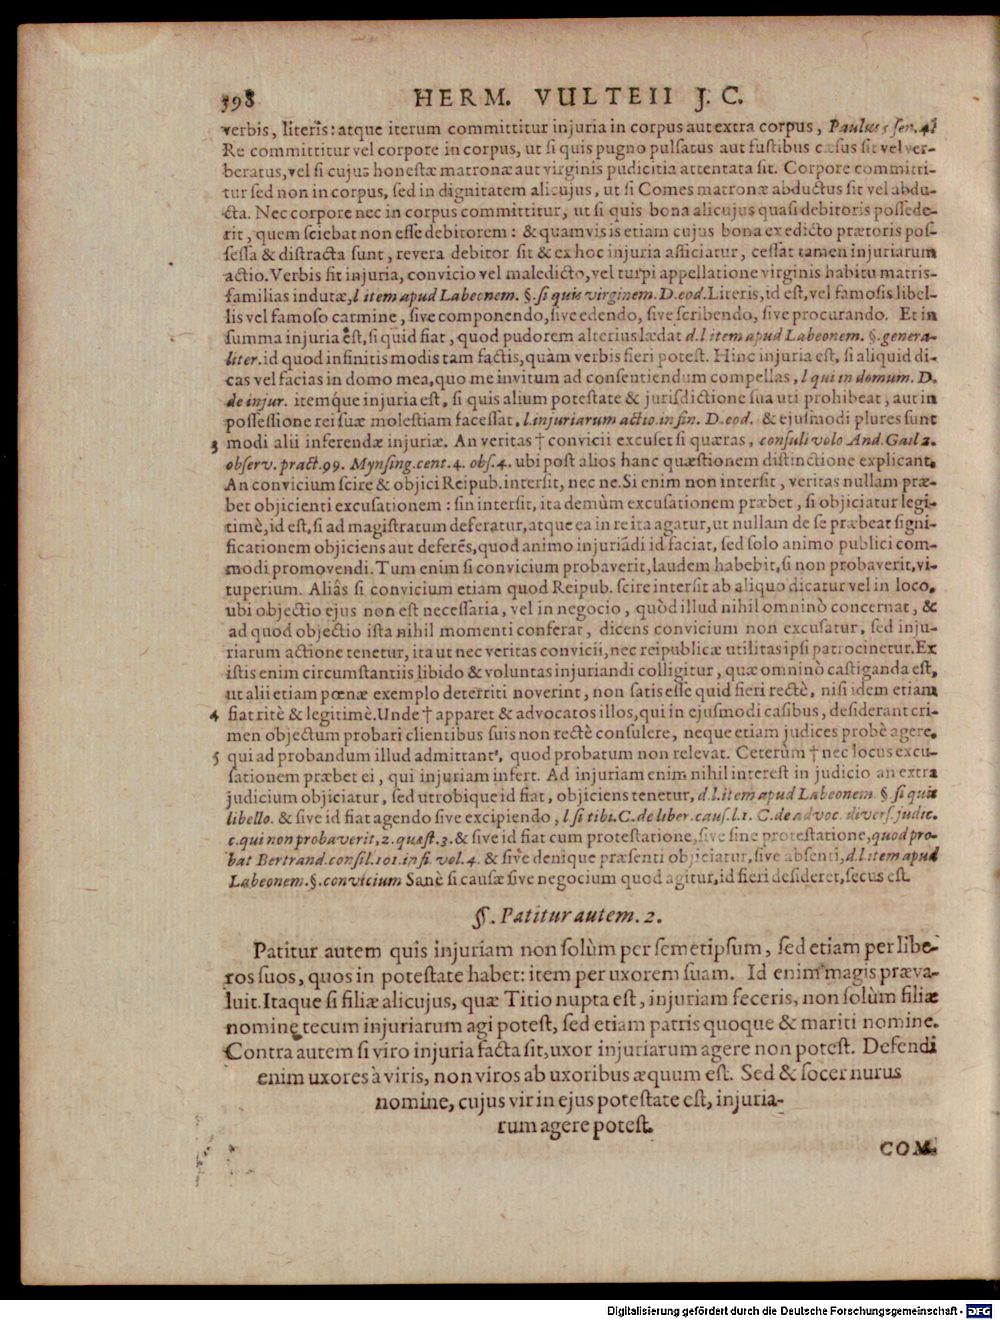 598 HERM. VULTEII J. C.
verbis, literis: atque iterum committitur injuria in corpus aut extra corpus, Paulus 5 sen. 4.
Re committitur vel corpore in corpus, ut si quis pugno pulsatus aut fustibus cæsus sit vel ver-
beratus, vel si cujus honestæ matronæ aut virginis pudicitia attentata sit. Corpore committi-
tur sed non in corpus, sed in dignitatem alicujus, ut si Comes matronæ abductus sit vel abdu-
cta. Nec corpore nec in corpus committitur, ut si quis bona alicujus quasi debitoris possede-
rit, quem sciebat non esse debitorem: & quamvis is etiam cujus bona ex edicto prætoris pos-
sessa & distracta sunt, revera debitor sit & ex hoc injuria afficiatur, cessat tamen injuriarum
actio. Verbis fit injuria, convicio vel maledicto, vel turpi appellatione virginis habitu matris-
familias indutæ, l item apud Labeonem. §. si quis virginem. D. eod. Literis, id est, vel famosis libel-
lis vel famoso carmine, sive componendo, sive edendo, sive scribendo, sive procurando. Et in
summa injuria est, si quid fiat, quod pudorem alterius lædat d. l item apud Labeonem. §. genera-
liter. id quod infinitis modis tam factis, quàm verbis fieri potest. Hinc injuria est, si aliquid di-
cas vel facias in domo mea, quo me invitum ad consentiendum compellas, l qui in domum. D.
de injur. itemque injuria est, si quis alium potestate & jurisdictione sua uti prohibeat, aut in
possessione rei suæ molestiam facessat, l. injuriarum actio. in fin. D. eod. & ejusmodi plures sunt
3 modi alii inferendæ injuriæ. An veritas † convicii excuset si quæras, consuli volo And. Gail 2.
observ. pract. 99. Mynsing. cent. 4. obs. 4. ubi post alios hanc quæstionem distinctione explicant.
An convicium scire & objici Reipub. intersit, nec ne. Si enim non intersit, veritas nullam præ-
bet objicienti excusationem: sin intersit, ita demùm excusationem præbet, si objiciatur legi-
timè, id est, si ad magistratum deferatur, atque ea in re ita agatur, ut nullam de se præbeat signi-
ficationem objiciens aut deferēs, quod animo injuriādi id faciat, sed solo animo publici com-
modi promovendi. Tum enim si convicium probaverit, laudem habebit, si non probaverit, vi-
tuperium. Aliâs si convicium etiam quod Reipub. scire intersit ab aliquo dicatur vel in loco,
ubi objectio ejus non est necessaria, vel in negocio, quòd illud nihil omninò concernat, &
ad quod objectio ista nihil momenti conferat, dicens convicium non excusatur, sed inju-
riarum actione tenetur, ita ut nec veritas convicii, nec reipublicæ utilitas ipsi patrocinetur. Ex
istis enim circumstantiis libido & voluntas injuriandi colligitur, quæ omninò castiganda est,
ut alii etiam pœnæ exemplo deterriti noverint, non satis esse quid fieri rectè, nisi idem etiam
4 fiat ritè & legitimè. Unde † apparet & advocatos illos, qui in ejusmodi casibus, desiderant cri-
men objectum probari clientibus suis non rectè consulere, neque etiam judices probè agere,
5 qui ad probandum illud admittant, quod probatum non relevat. Ceterùm † nec locus excu-
sationem præbet ei, qui injuriam infert. Ad injuriam enim nihil interest in judicio an extra
judicium objiciatur, sed utrobique id fiat, objiciens tenetur, d. l. item apud Labeonem. §. si quis
libello. & sive id fiat agendo sive excipiendo, l si tibi. C. de liber. caus. l. 1. C. de advoc. divers. judic.
c. qui non probaverit, 2. quæst. 3. & sive id fiat cum protestatione, sive sine protestatione, quod pro-
bat Bertrand. consil. 101. in fi. vol. 4. & sive denique præsenti objiciatur, sive absenti, d. l item apud
Labeonem. §. convicium Sanè si causæ sive negocium quod agitur, id fieri desideret, secus est.
§. Patitur autem. 2.
Patitur autem quis injuriam non solùm per semetipsum, sed etiam per libe-
ros suos, quos in potestate habet: item per uxorem suam. Id enim magis præva-
luit. Itaque si filiæ alicujus, quæ Titio nupta est, injuriam feceris, non solùm filiæ
nomine tecum injuriarum agi potest, sed etiam patris quoque & mariti nomine.
Contra autem si viro injuria facta sit, uxor injuriarum agere non potest. Defendi
enim uxores à viris, non viros ab uxoribus æquum est. Sed & socer nurus
nomine, cujus vir in ejus potestate est, injuria-
rum agere potest.
COM-
Digitalisierung gefördert durch die Deutsche Forschungsgemeinschaft - DFG